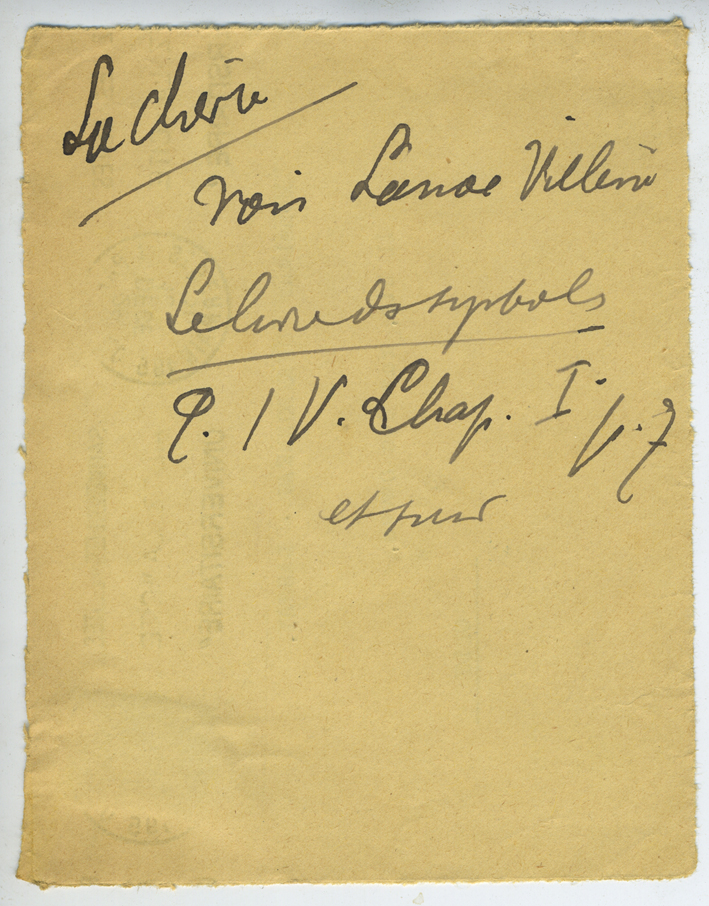 La chèvre
Voir Lanoe Villène
Le livre des symboles
T. IV. Chap. I. p. 7
et suiv